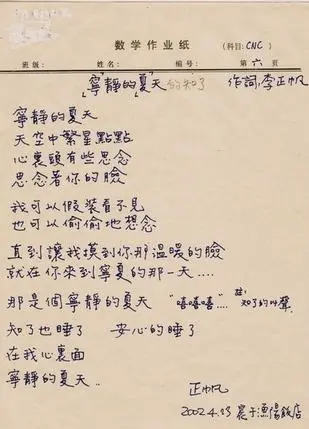 数学作业纸 (科目: CNC)
班级: 姓名: 编号: 第 六 页
「寧靜的夏」天的知了 作詞，李正帆
寧靜的夏天
天空中繁星點點
心裏頭有些思念
思念著你的臉
我可以假裝看不見
也可以偷偷地想念
直到讓我摸到你那溫暖的臉
就在你來到寧夏的那一天....
那是個寧靜的夏天 "嘻嘻嘻"... 註: 知了的叫聲
知了也睡了 安心的睡了
在我心裏面
寧靜的夏天..
正帆
2002.4.23 晨于漁陽飯店